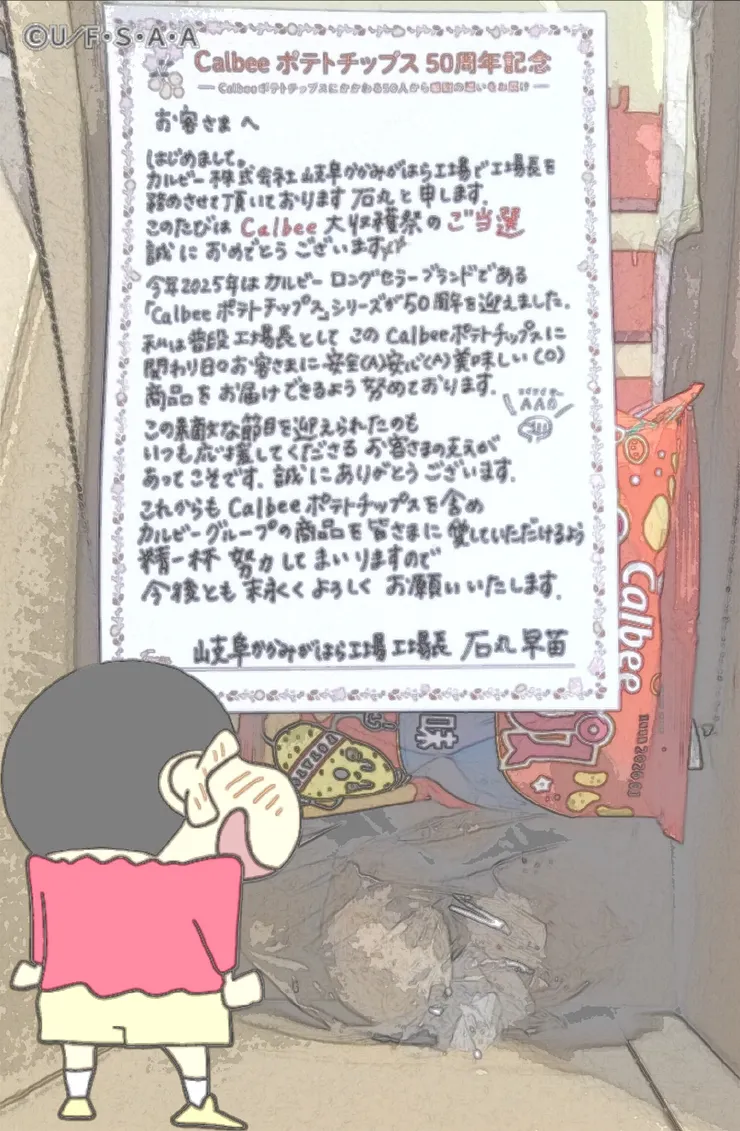 ©U/F・S・A・A
Calbee ポテトチップス 50周年記念
Calbeeポテトチップスにかかわる50人から感謝の想いをお届け
お客さまへ
はじめまして。
カルビー株式会社 岐阜かかみがはら工場で工場長を
務めさせて頂いております 石丸と申します。
このたびは Calbee 大収穫祭の ご当選
誠に おめでとう ございます
今年2025年は カルビー ロングセラーブランドである
「Calbee ポテトチップス」シリーズが50周年を迎えました.
私は普段 工場長として この Calbeeポテトチップスに
関わり日々お客さまに安全(A)安心(A)美味しい(O)
商品を お届けできるよう 努めております.
AAO
この素敵な節目を迎えられたのも
いつも応援してくださる お客さまの支えが
あってこそです. 誠にありがとうございます.
これからも Calbeeポテトチップスを含め
カルビーグループの商品を 皆さまに 愛していただけるよう
精一杯 努力してまいりますので
今後とも 末永くよろしく お願いいたします.
岐阜かかみがはら工場 工場長 石丸早苗
Calbee
味